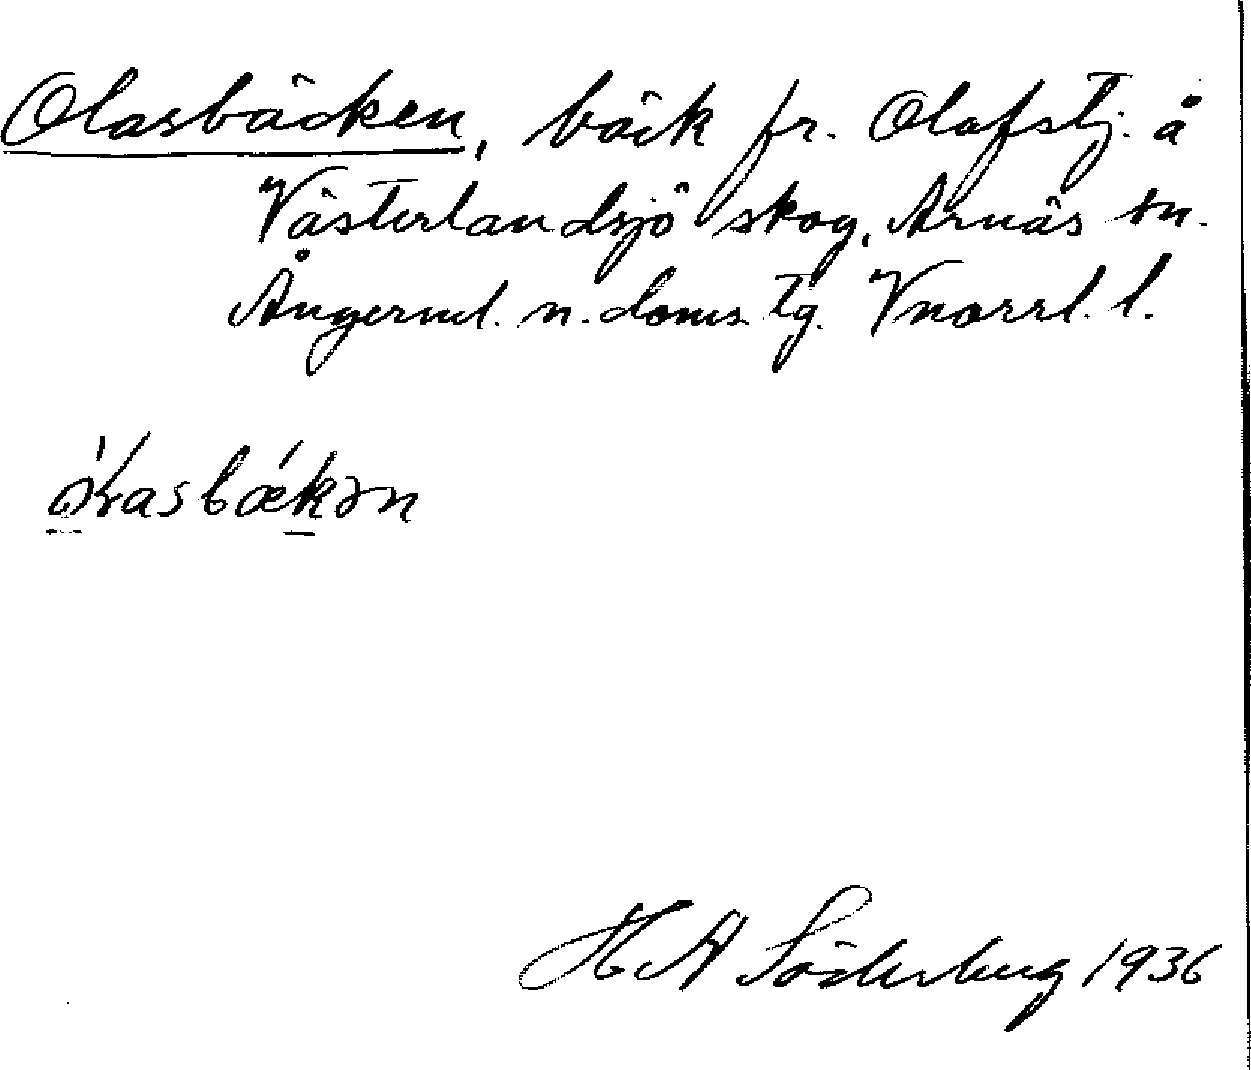 Olasbäcken, bäck fr. Olafstj. å
Västerlandsjö skog, Arnäs sn.
Ångerml. n. doms. tg. Vnorrl. l.
H A Söderberg 1936